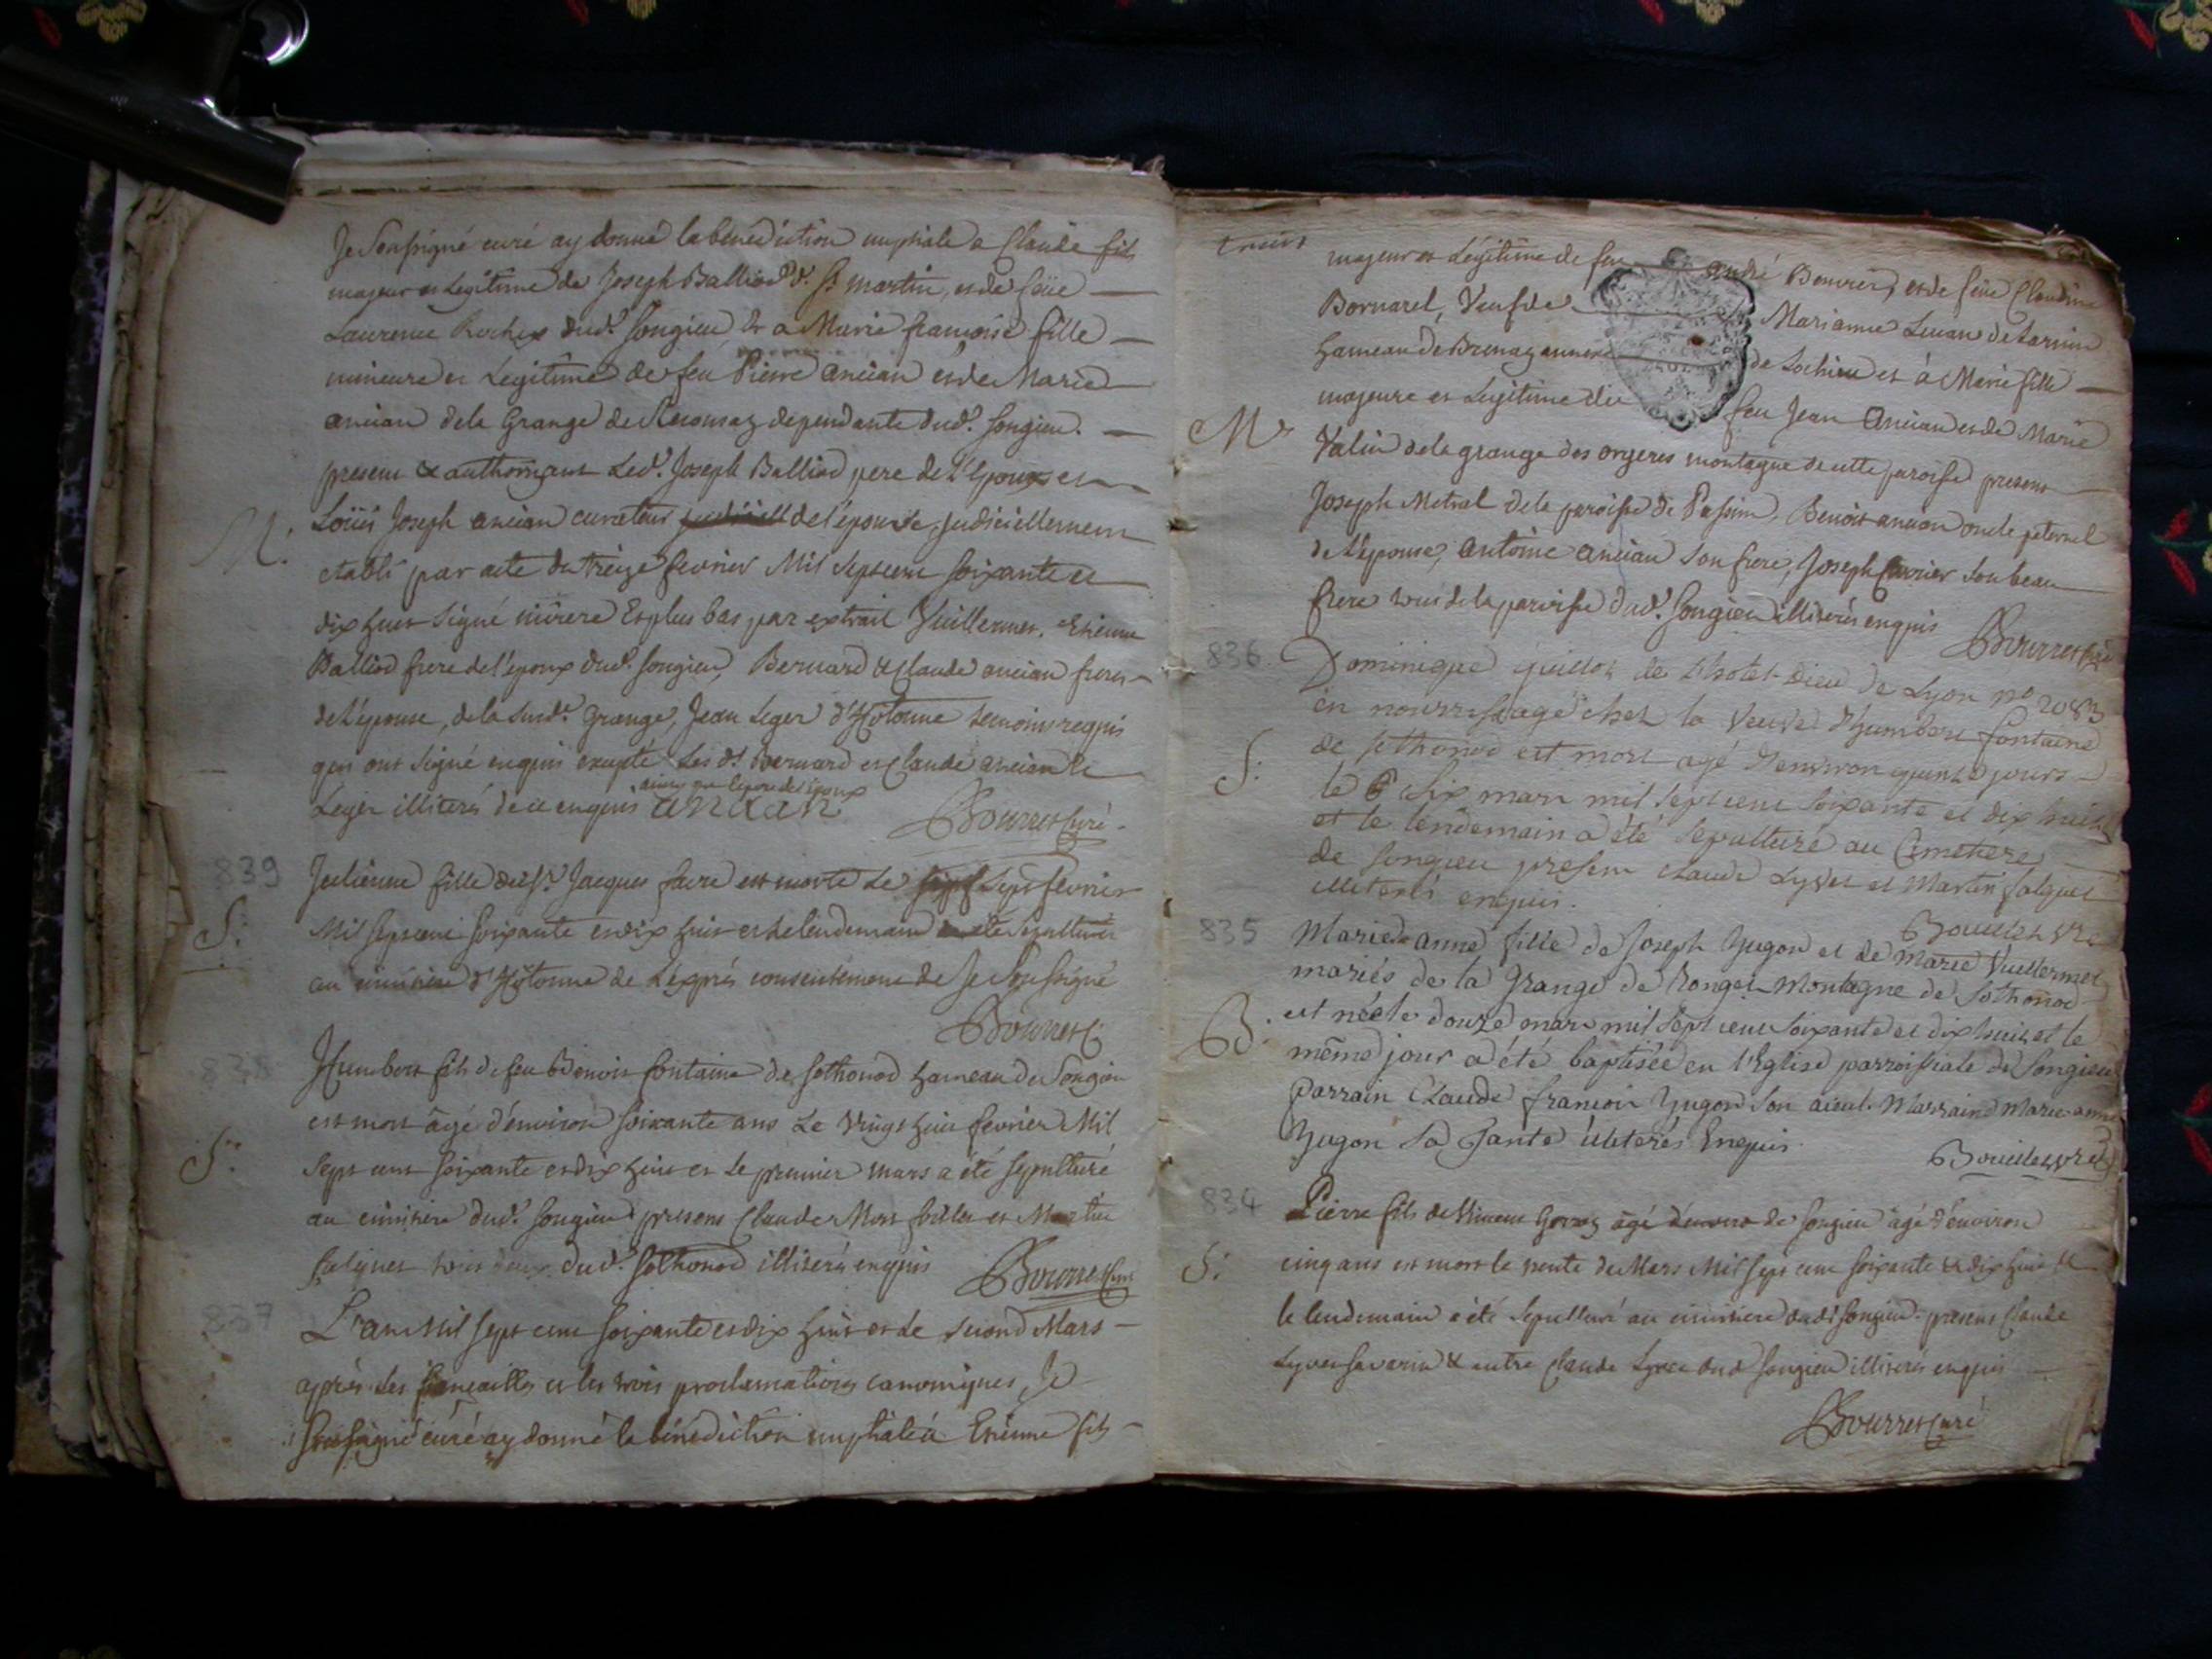 Je Soussigné curé ay donné la benediction nuptiale a Claude fils
majeur et Legitime de Joseph Balliod d. St martin, et de feüe
Laurence Rochex dud.t Songieu Et a Marie françoise fille
mineure et Legitime de feu Pierre ancian et de Marie
ancian dela Grange de dependante dud.t Songieu.
presens & authorisans Led.t Joseph Balliod pere de L'epoux et
M. Loüis Joseph ancian curateur de l'épouse, judiciellement
etabli par acte du treize fevrier Mil Septcent Soixante et
dix huit Signé Et plus bas par extrait Vuillermet, Etienne
Balliod frere de l'epoux dud.t Songieu, Bernard & Claude ancian freres
de L'epouse, de la susd.e Grange, Jean Leger d'Hotonne temoins requis
qui ont Signé enquis excepté Les d.ts Bernard et Claude ancian le
ainsy que le pere de l'époux
Leger illiterés de ce enquis ancian Bourret Curé
839 Julienne fille du S.r Jacques favre est morte Le Sept fevrier
S. Mil Septcent Soixante et dix huit et le lendemain a été Sepulturée
au cimitiere d'Hotonne de Lexprés consentement de Je Soussigné
Bourret C
838 Humbert fils de feu Benoit fontaine de Sothonod hameau de Songieu
est mort âgé d'environ Soixante ans Le Vingt huit fevrier Mil
S. Sept cent Soixante et dix huit et Le premier mars a été Sepulturé
au cimitiere dud.t Songieu presens Claude et Martin
Salignet tous deux dud.t Sothonod illiterés enquis Bourret Curé
837 L'an Mil Sept cent Soixante et dix huit et Le Second Mars
après Les fiançailles et les trois proclamations canoniques Je
Soussigné curé ay donné la bénédiction nuptiale à Etienne fils
majeur et Légitime de feu andré Bouvier, et de feüe Claudine
Bornarel, Veuf de Marianne de
hameau de de Lochieu et à Marie fille
majeure et Legitime de feu Jean Ancian et de Marie
M Valin dela grange des orgeres montagne de cette paroisse presens
Joseph Metral dela paroisse de Passin, Benoit ancian oncle paternel
de L'epouse, antoine ancian Son frere, Joseph Son beau
frere tous dela paroisse dud.t Songieu illiterés enquis
Bourret Curé
836 Dominique guillot de l'hotel-Dieu de Lyon no 2083
en nourrissage chez la Veuve d'humbert fontaine
de Sothonod est mort agé d'environ quinze jours
S. le Six mars mil Sept cent Soixante et dix huit
et le lendemain a été Sepulturé au Cimetiere
de Songieu presens Claude Lyvet et Martin Salignet
illiterés enquis.
835 Marie-anne fille de Joseph hugon et de Marie Vuillermet
mariés de la grange de Ronget Montagne de Sothonod
B. est née le douze mars mil Sept cent Soixante et dix huit et le
même jour a été baptisée en l'Eglise parroissiale de Songieu
parrain Claude françois hugon Son aieul. Marraine Marie-anne
hugon Sa Tante illiterés Enquis.
834 Pierre fils de Vincent âgé d'environ de Songieu âgé d'environ
S. cinq ans est mort le trente de Mars Mil Sept cent Soixante & dix huit &
le lendemain a été Sepulturé au cimitiere dud.t Songieu. presens Claude
Lyvet Savarin & autre Claude Lyvet dud.t Songieu illiterés enquis
Bourret Curé